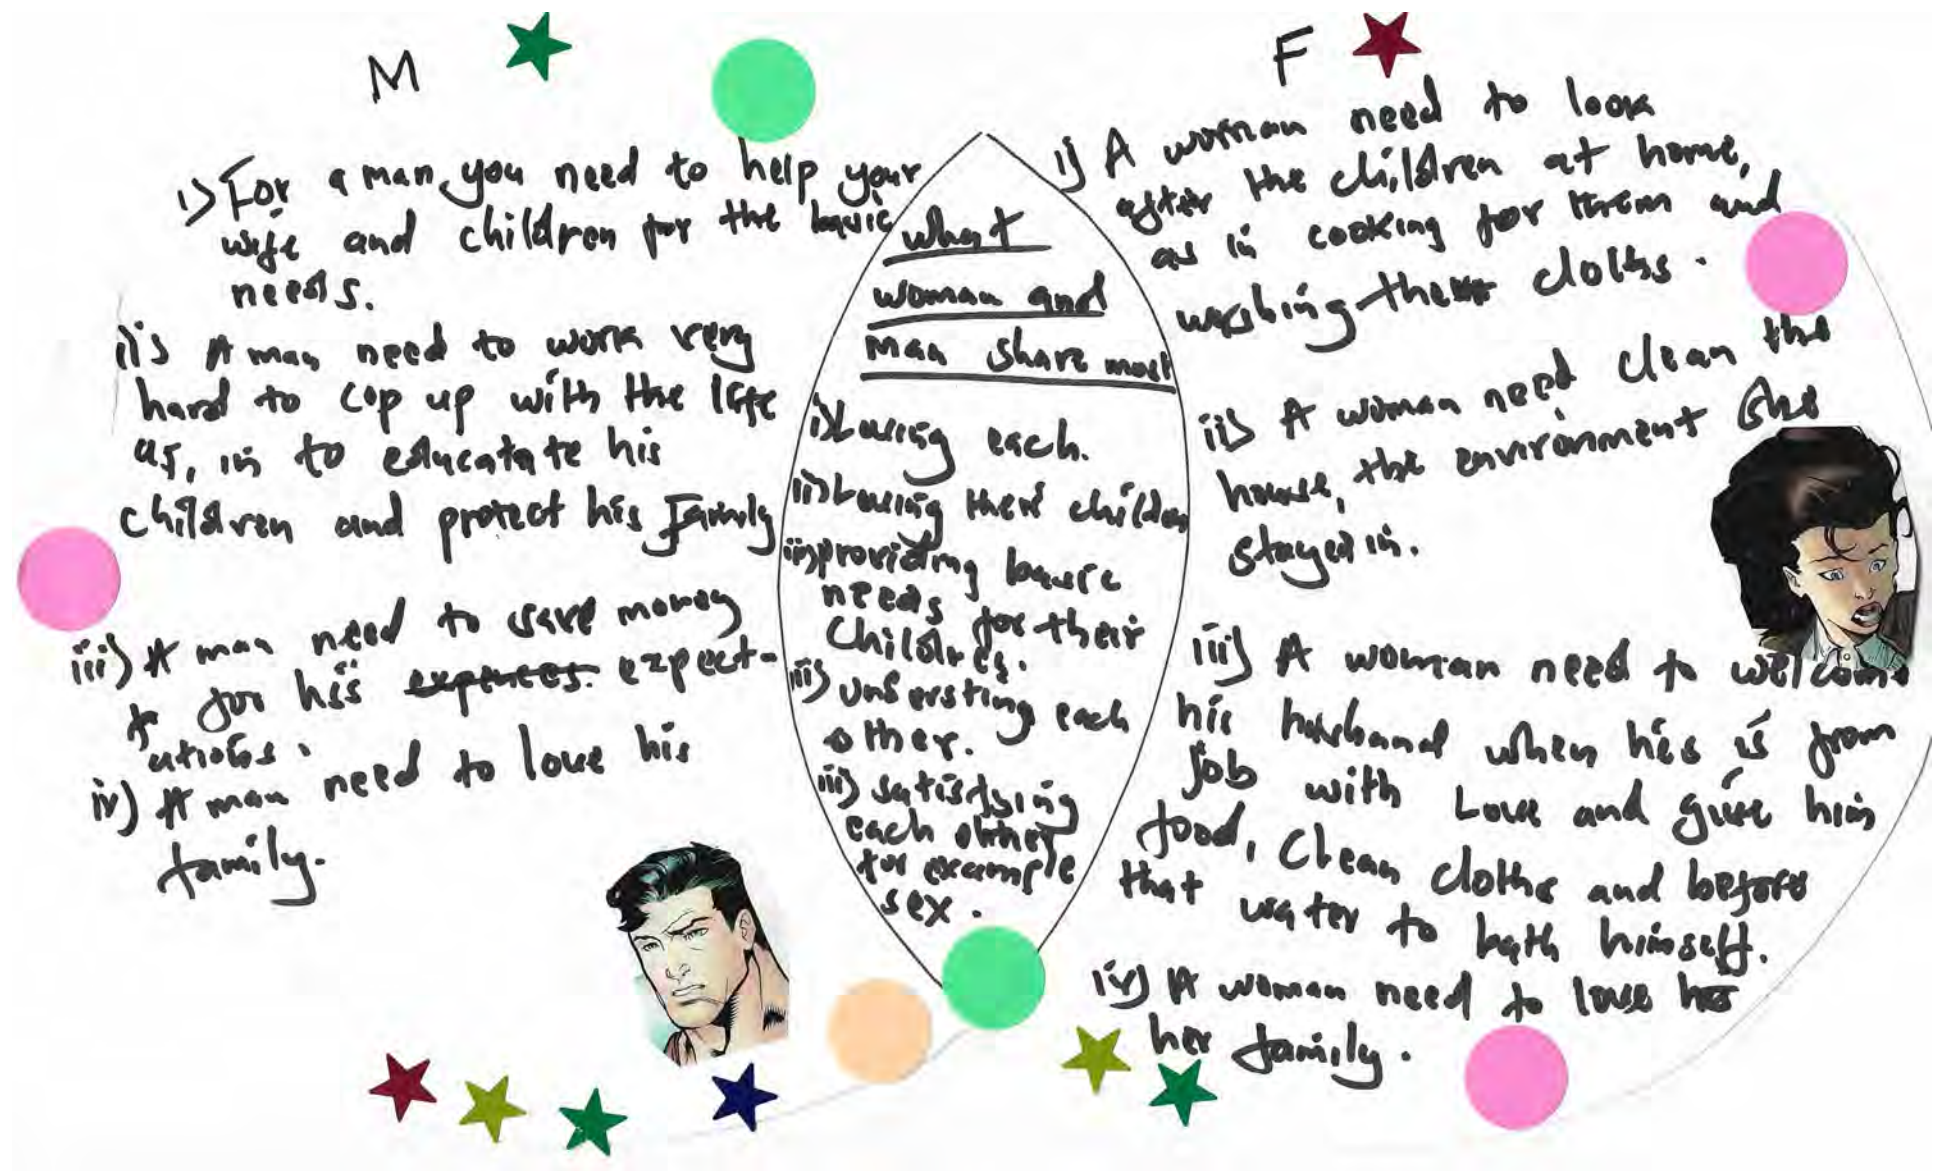 M
i) For a man, you need to help your
wife and children for the basic
needs.
ii) A man need to work very
hard to cop up with the life
as, in to educatate his
children and protect his family
iii) A man need to save money
for his expences. expect-
ations.
iv) A man need to love his
family.
what
woman and
man share most
i) Loving each.
ii) Loving their children
iii) providing basic
needs for their
children.
iii) Understing each
other.
iii) satisfying
each other
for example
sex.
F
i) A woman need to look
after the children at home,
as in cooking for them and
washing their cloths.
ii) A woman need clean the
house, the environment she
stayed in.
iii) A woman need to welcome
his husband when his is from
job with Love and give him
food, Clean cloths and before
that water to bath himself.
iv) A woman need to love her
her family.